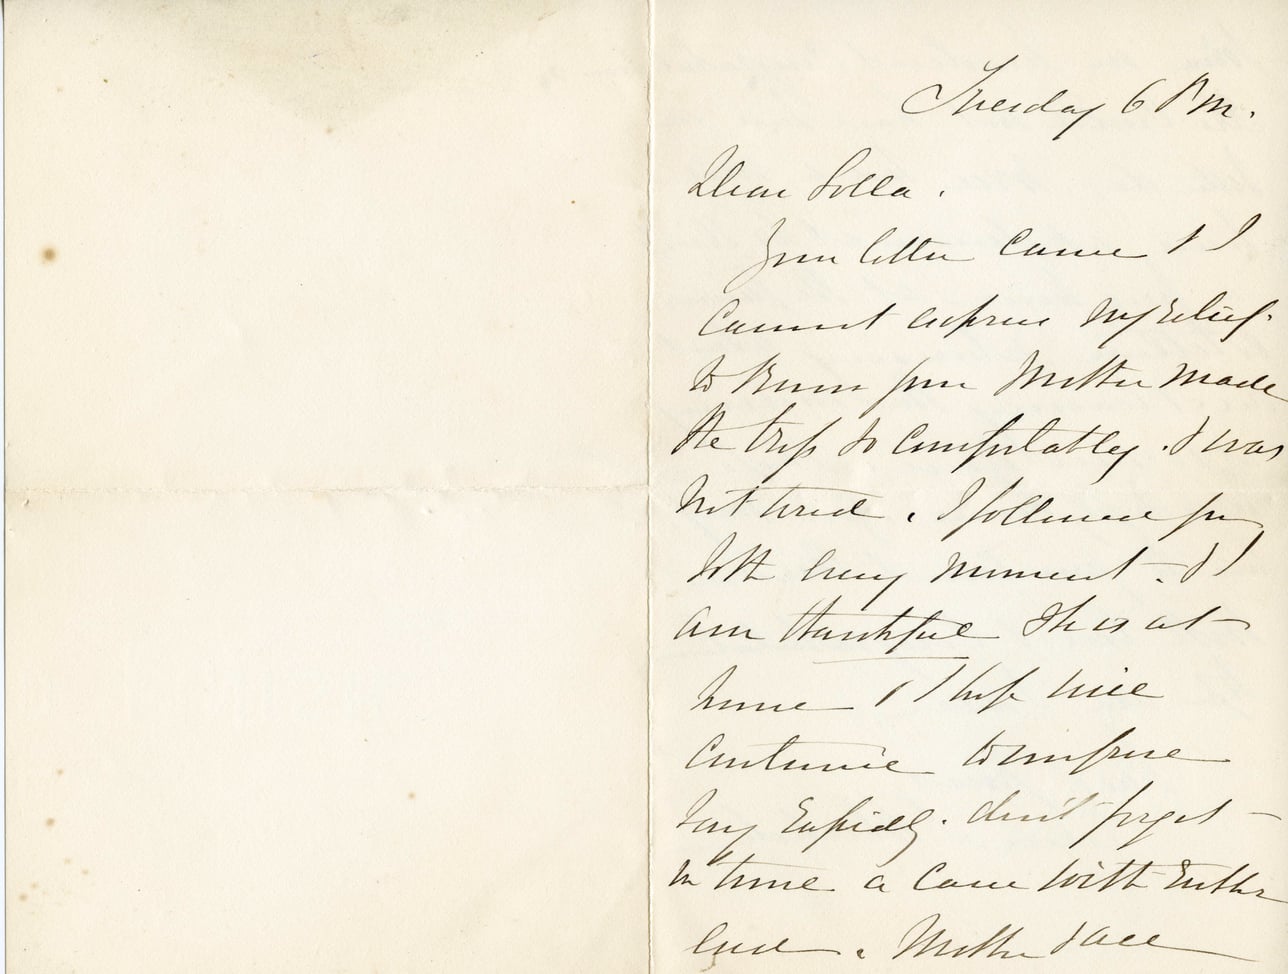 Tuesday 6 P.M.
Dear Lolla.
Your letter came & I
cannot express my relief
to know your Mother made
the trip so comfortably. & was
not tired. I followed you
both every moment - & I
am thankful she is at
home & I hope will
continue to improve
very rapidly. don't forget
in time a cane with rubber
end. Mother & all